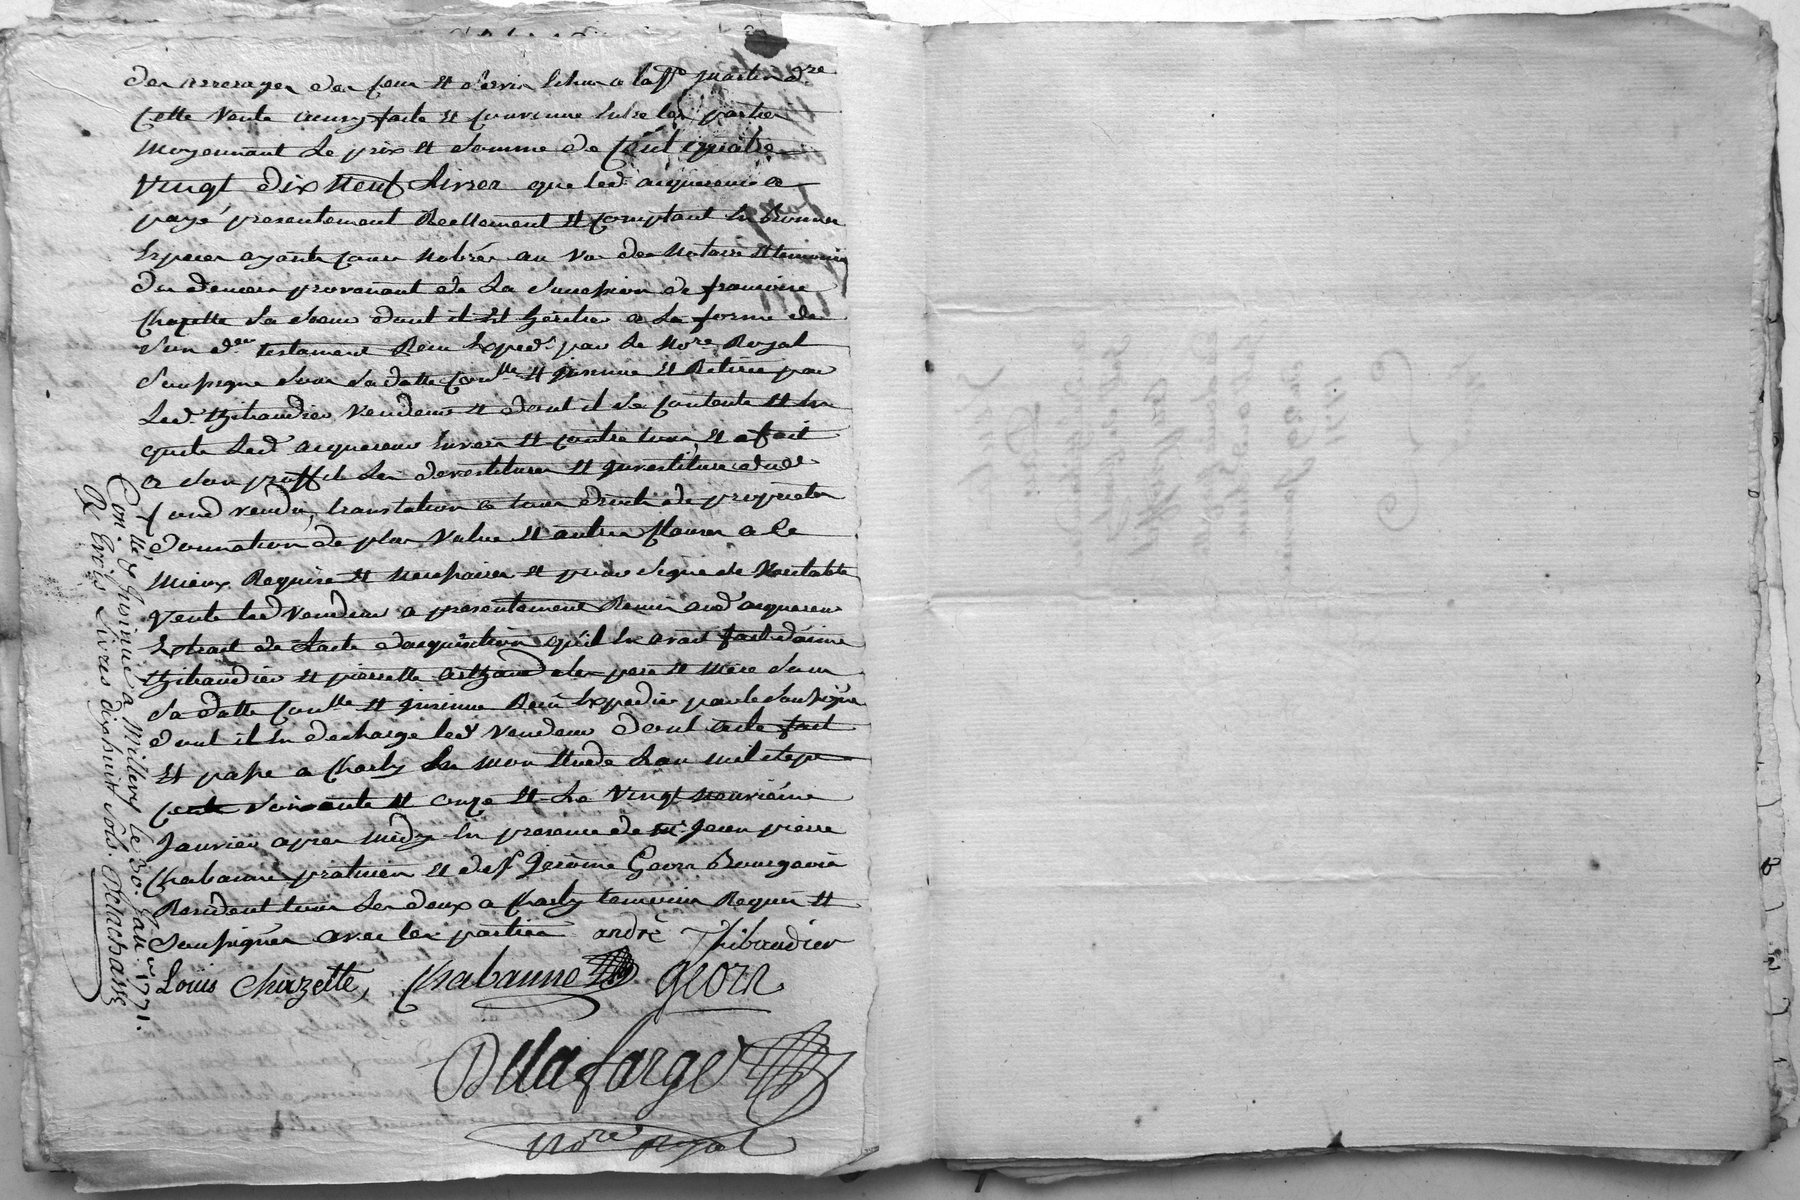 des arrerages des cens et servis échus a la St martin dre
cette vente ainsy faite et convenue entre les parties
moyennant le prix et somme de cent quatre
vingt dix neuf livres que led. acquereur a
payé presentement Reellement et comptant en bonnes
especes ayants cours nobrées au vu des notaire et temoins
des deniers provenant de la succession de francoise
Chazette sa soeur dont il est héritier a la forme de
son der testament Recu expedé par le nore Royal
soussigné sous sa datte conllé et insinué et Retirée par
led. thibaudier vendeur et dont il se contente et en
quitte led acquereur envers et contre tous, et a fait
a son proffit les devestitures et investitures dud
fond vendu, translation de tous droits de proprieter
donnation de plus value et autres clauses a ce
mieux Requise et necessaires et pour signe de veritable
vente led vendeur a presentement Remis aud acquereur
Extrait de lacte dacquisition qu'il en avait fait d'aimé
thibaudier et pierrette ses pere et mere sous
sa datte conllé et insinué Recu expedié par le soussigné
dont il en decharge led vendeur dont acte fait
et passé a Charly en mon etude l'an mil sept
cent soixante et onze et le vingt neuvieme
Janvier apres midy en presence de me Jean pierre
Chabanne praticien et de sr Jerôme Georn Bourgeois
Residents tous les deux a Charly temoins Requis et
soussignés avec les parties andré Thibaudier
Louis Chazette, Chabanne georn
Dellafarge
nore royal
Con.llé & Insinué a Millery le 30. Janv. 1771.
R. trois Livres dixhuit sols. Delachasse